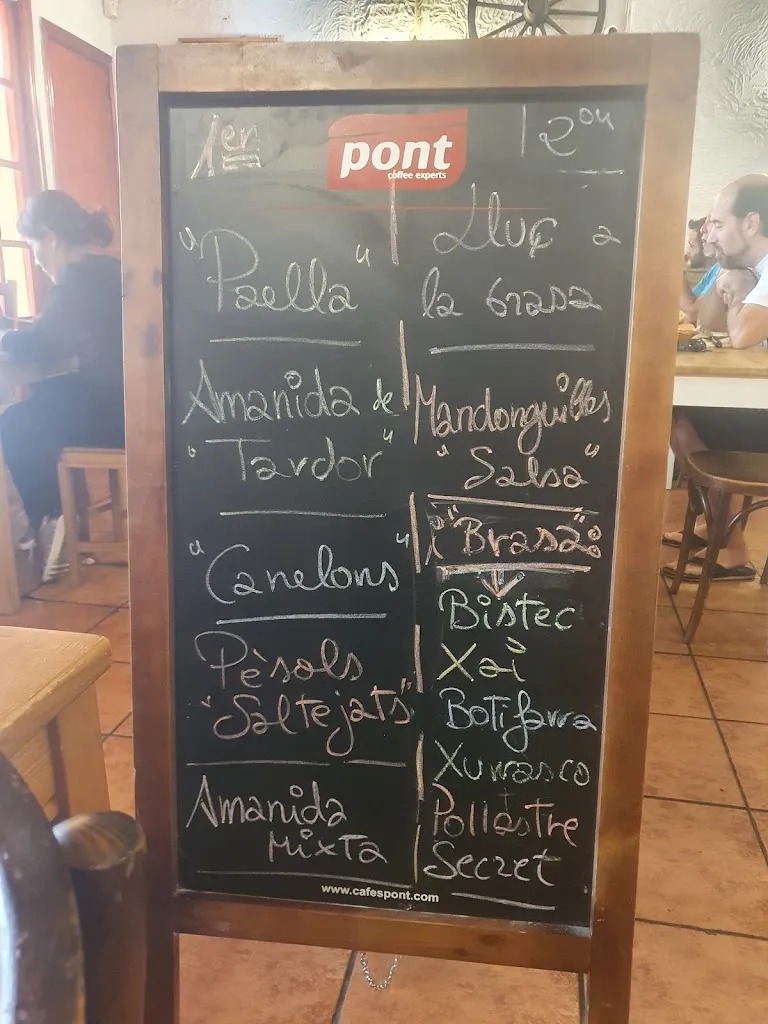 1er
pont
coffee experts
2on
"Paella"
Amanida de
"Tardor"
"Canelons"
Pèsols
"Saltejats"
Amanida
Mixta
Lluç a
la brasa
Mandonguilles
"Salsa"
"Brasa":
Bistec
Xai
Botifarra
Xurrasco
Pollastre
Secret
www.cafespont.com